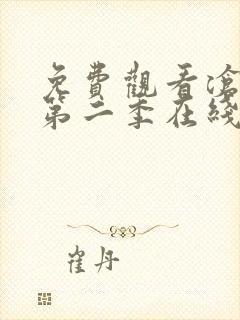 免費觀看滄
第二季在綫
崔丹